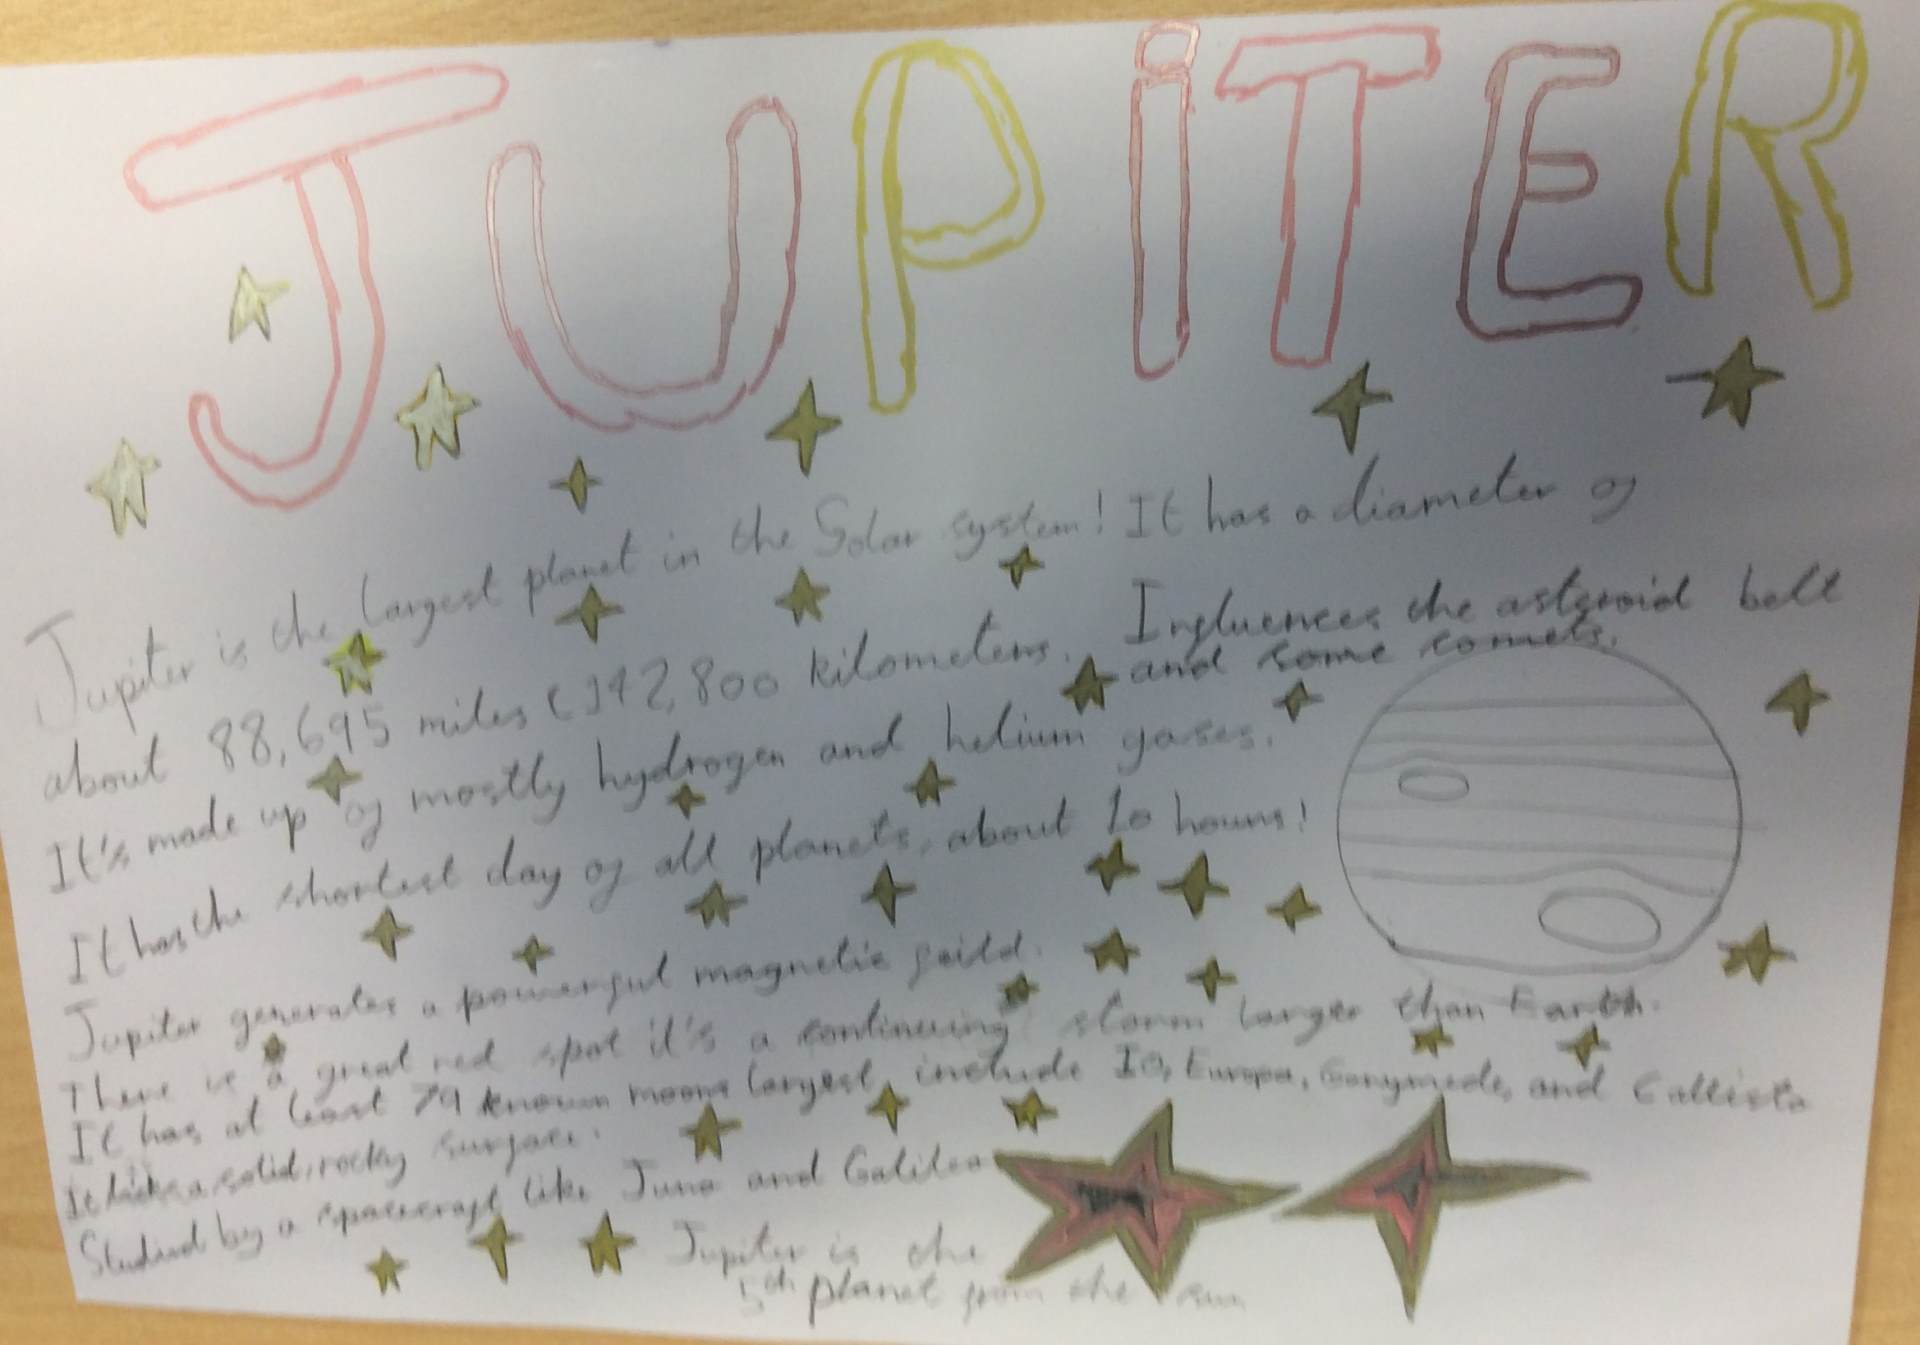 JUPiTER
Jupiter is the largest planet in the Solar system! It has a diameter of
about 88,695 miles (142,800 kilometers.
Influences the asteroid belt
and some comets.
It's made up of mostly hydrogen and helium gases.
It has the shortest day of all planets, about 10 hours!
Jupiter generates a powerful magnetic feild.
There is a great red spot it's a continuing storm larger than Earth.
It has at least 79 known moons largest include IO, Europa, Ganymede, and Callisto
It lacks a solid, rocky surface.
Studied by a spacecraft like Juno and Galileo
Jupiter is the
5th planet from the sun